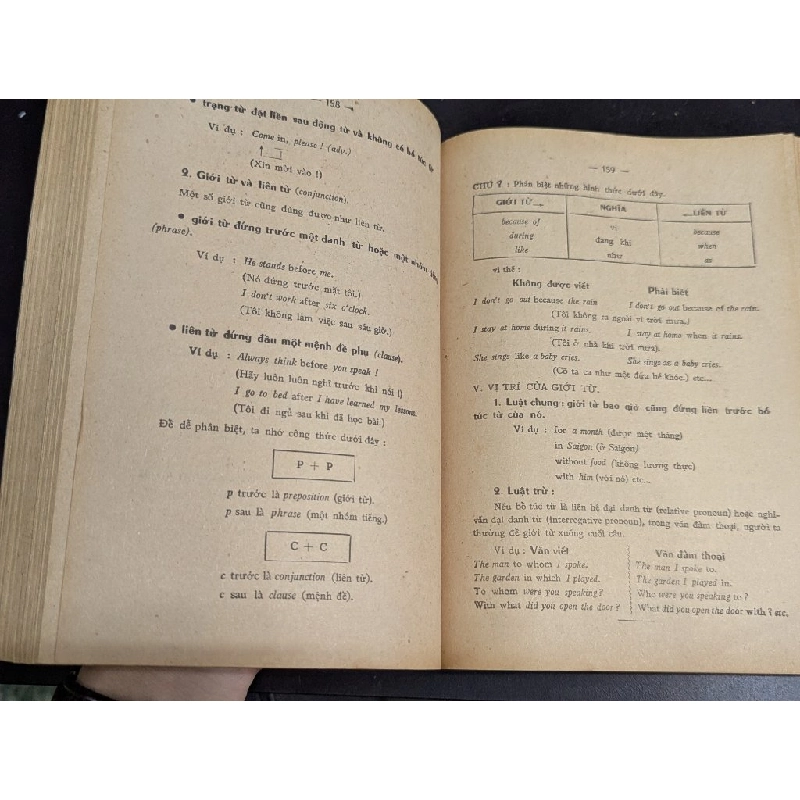 — 158 —
trạng từ đặt liền sau động từ và không có bổ túc từ
Ví dụ : Come in, please ! (adv.)
(Xin mời vào !)
2. Giới từ và liên từ (conjunction).
Một số giới từ cũng dùng được như liên từ.
• giới từ đứng trước một danh từ hoặc một nhóm tiếng
(phrase).
Ví dụ : He stands before me.
(Nó đứng trước mặt tôi.)
I don't work after six o'clock.
(Tôi không làm việc sau sáu giờ.)
• liên từ đứng đầu một mệnh đề phụ (clause).
Ví dụ : Always think before you speak !
(Hãy luôn luôn nghĩ trước khi nói !)
I go to bed after I have learned my lessons.
(Tôi đi ngủ sau khi đã học bài.)
Để dễ phân biệt, ta nhớ công thức dưới đây :
P + P
p trước là preposition (giới từ).
p sau là phrase (một nhóm tiếng.)
C + C
c trước là conjunction (liên từ).
c sau là clause (mệnh đề).
— 159 —
CHÚ Ý : Phân biệt những hình thức dưới đây.
GIỚI TỪ NGHĨA LIÊN TỪ
because of vì because
during đang khi when
like như as
ví thể :
Không được viết Phải biết
I don't go out because the rain I don't go out because of the rain.
(Tôi không ra ngoài vì trời mưa.)
I stay at home during it rains. I stay at home when it rains.
(Tôi ở nhà khi trời mưa).
She sings like a baby cries. She sings as a baby cries.
(Cô ta ca như một đứa bé khóc.) etc...
V. VỊ TRÍ CỦA GIỚI TỪ.
1. Luật chung : giới từ bao giờ cũng đứng liền trước bổ
túc từ của nó.
Ví dụ : for a month (được một tháng)
in Saigon (ở Saigon)
without food (không lương thực)
with him (với nó) etc...
2. Luật trừ :
Nếu bổ túc từ là liên hệ đại danh từ (relative pronoun) hoặc nghi-
vấn đại danh từ (interrogative pronoun), trong văn đàm thoại, người ta
thường để giới từ xuống cuối câu.
Ví dụ : Văn viết Văn đàm thoại
The man to whom I spoke. The man I spoke to.
The garden in which I played. The garden I played in.
To whom were you speaking ? Who were you speaking to ?
With what did you open the door ? What did you open the door with ? etc.